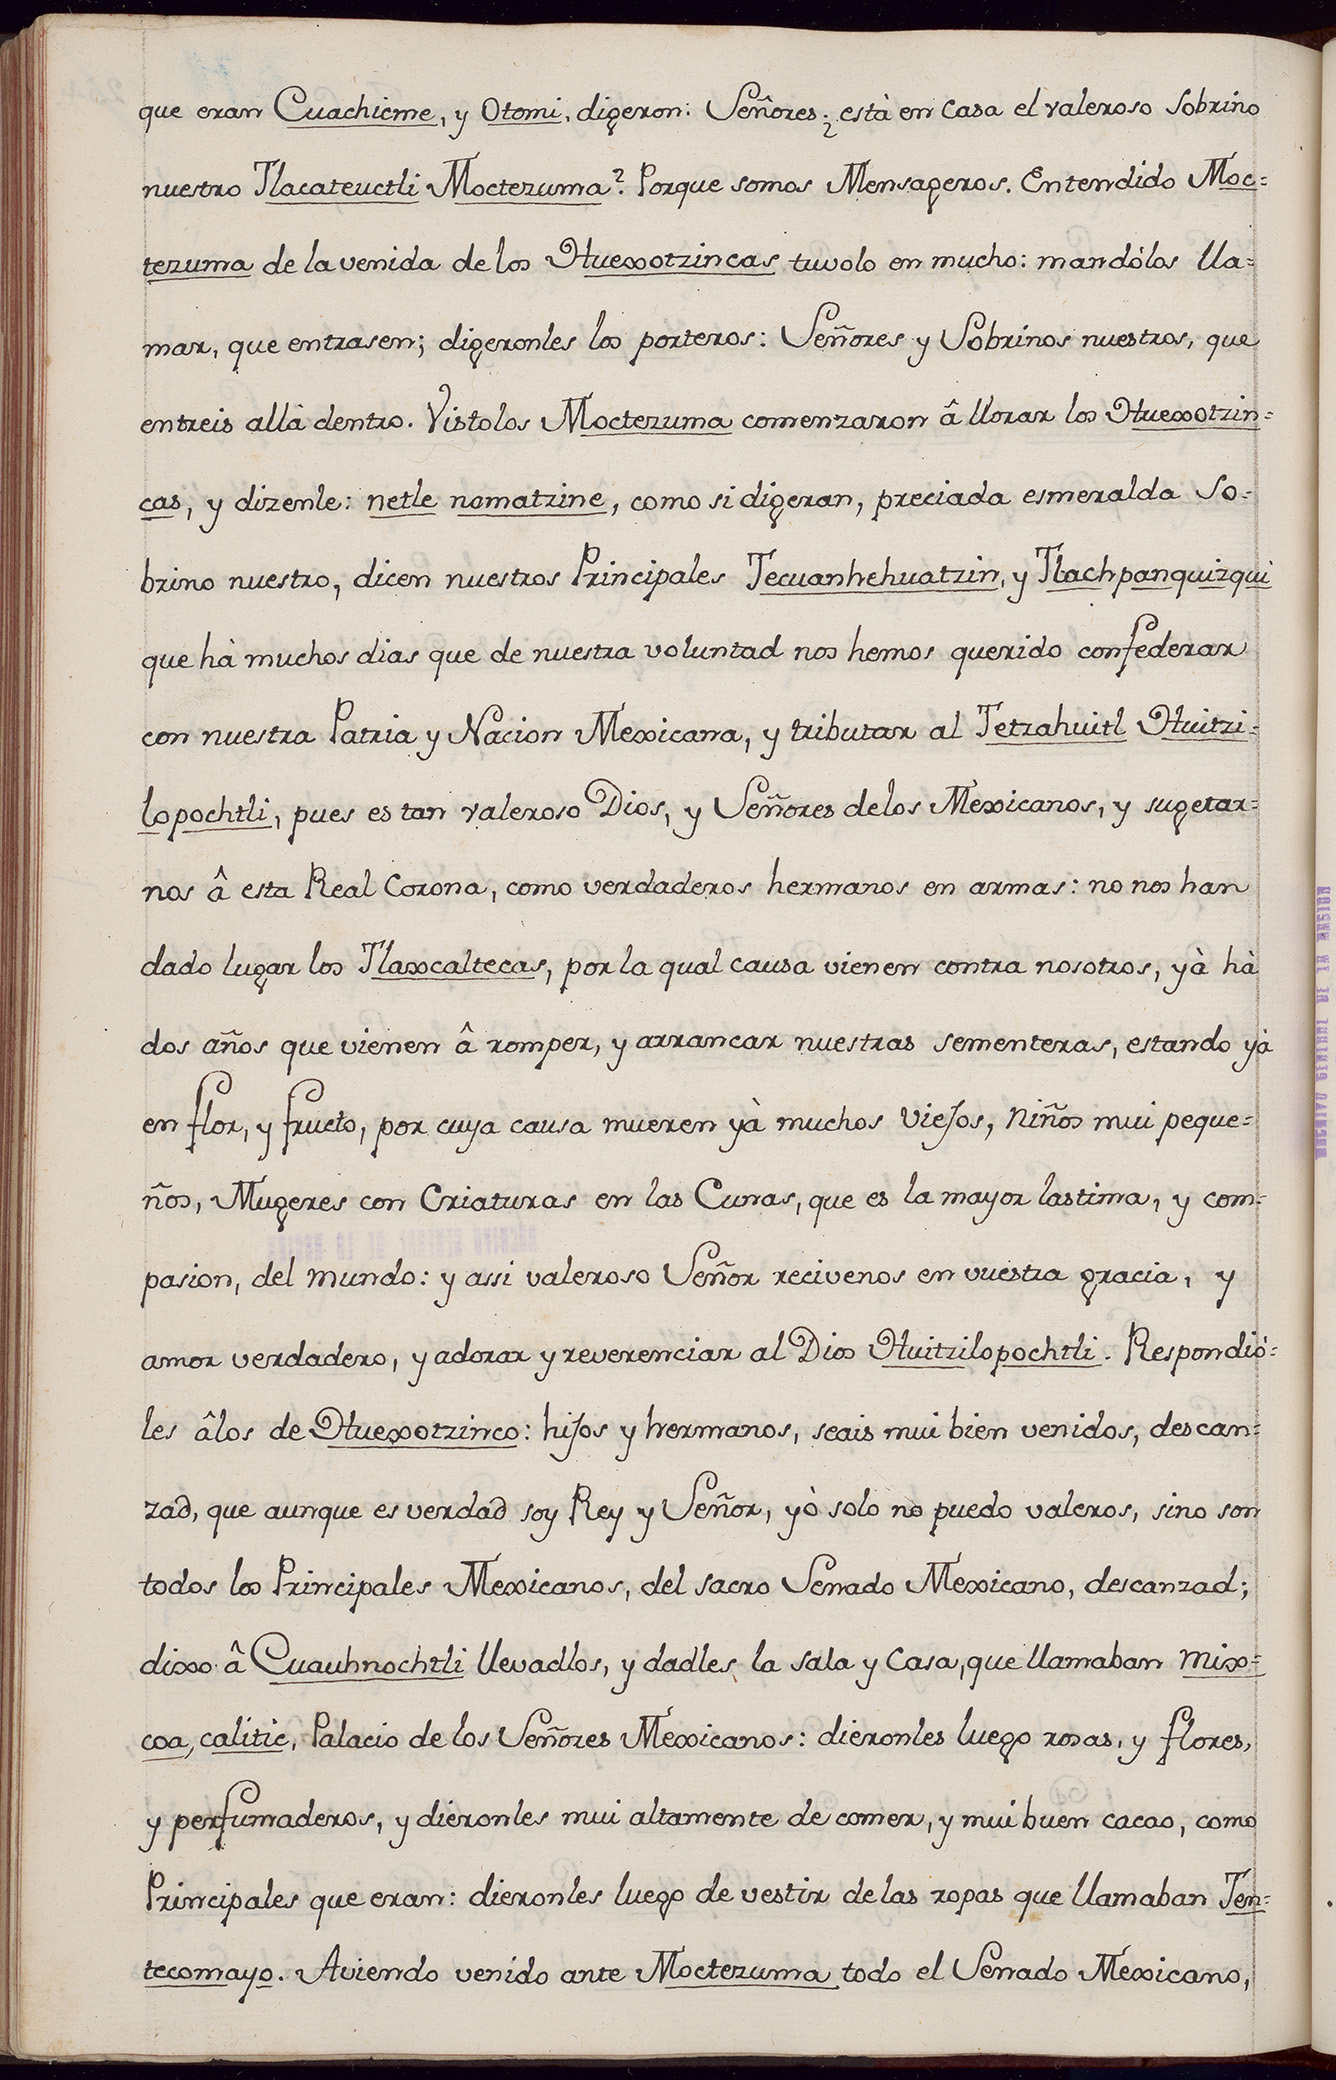 que eran Cuachicme, y Otomi, digeron: Señores ¿està en casa el valeroso Sobrino
nuestro Tlacateuctli Moctezuma? Porque somos Mensageros. Entendido Moc=
tezuma de la venida de los Huexotzincas tuvolo en mucho: mandólos lla=
mar, que entrasen; digeronles los porteros: Señores y Sobrinos nuestros, que
entreis allà dentro. Vistolos Moctezuma comenzaron â llorar los Huexotzin=
cas, y dizenle: netle nomatzine, como si digeran, preciada esmeralda So=
brino nuestro, dicen nuestros Principales Tecuanhehuatzin, y Tlachpanquizqui
que hà muchos dias que de nuestra voluntad nos hemos querido confederar
con nuestra Patria y Nacion Mexicana, y tributar al Tetzahuitl Huitzi=
lopochtli, pues es tan valeroso Dios, y Señores delos Mexicanos, y sugetar=
nos â esta Real Corona, como verdaderos hermanos en armas: no nos han
dado lugar los Tlaxcaltecas, por la qual causa vienen contra nosotros, yà hà
dos años que vienen â romper, y arrancar nuestras sementeras, estando yà
en flor, y fructo, por cuya causa mueren yà muchos Viejos, Niños mui peque=
ños, Mugeres con Criaturas en las Cunas, que es la mayor lastima, y com=
pasion, del mundo: y assi valeroso Señor recivenos en vuestra gracia, y
amor verdadero, y adorar y reverenciar al Dios Huitzilopochtli. Respondiò=
les âlos de Huexotzinco: hijos y hermanos, seais mui bien venidos, descan=
zad, que aunque es verdad soy Rey y Señor, yò solo no puedo valeros, sino son
todos los Principales Mexicanos, del sacro Senado Mexicano, descanzad;
dixo â Cuauhnochtli llevadlos, y dadles la sala y Casa, que llamaban Mix=
coa, calitic, Palacio de los Señores Mexicanos: dieronles luego rosas, y flores,
y perfumaderos, y dieronles mui altamente de comer, y mui buen cacao, como
Principales que eran: dieronles luego de vestir de las ropas que llamaban Ten=
tecomayo. Aviendo venido ante Moctezuma todo el Senado Mexicano,
ARCHIVO GENERAL DE LA NACION